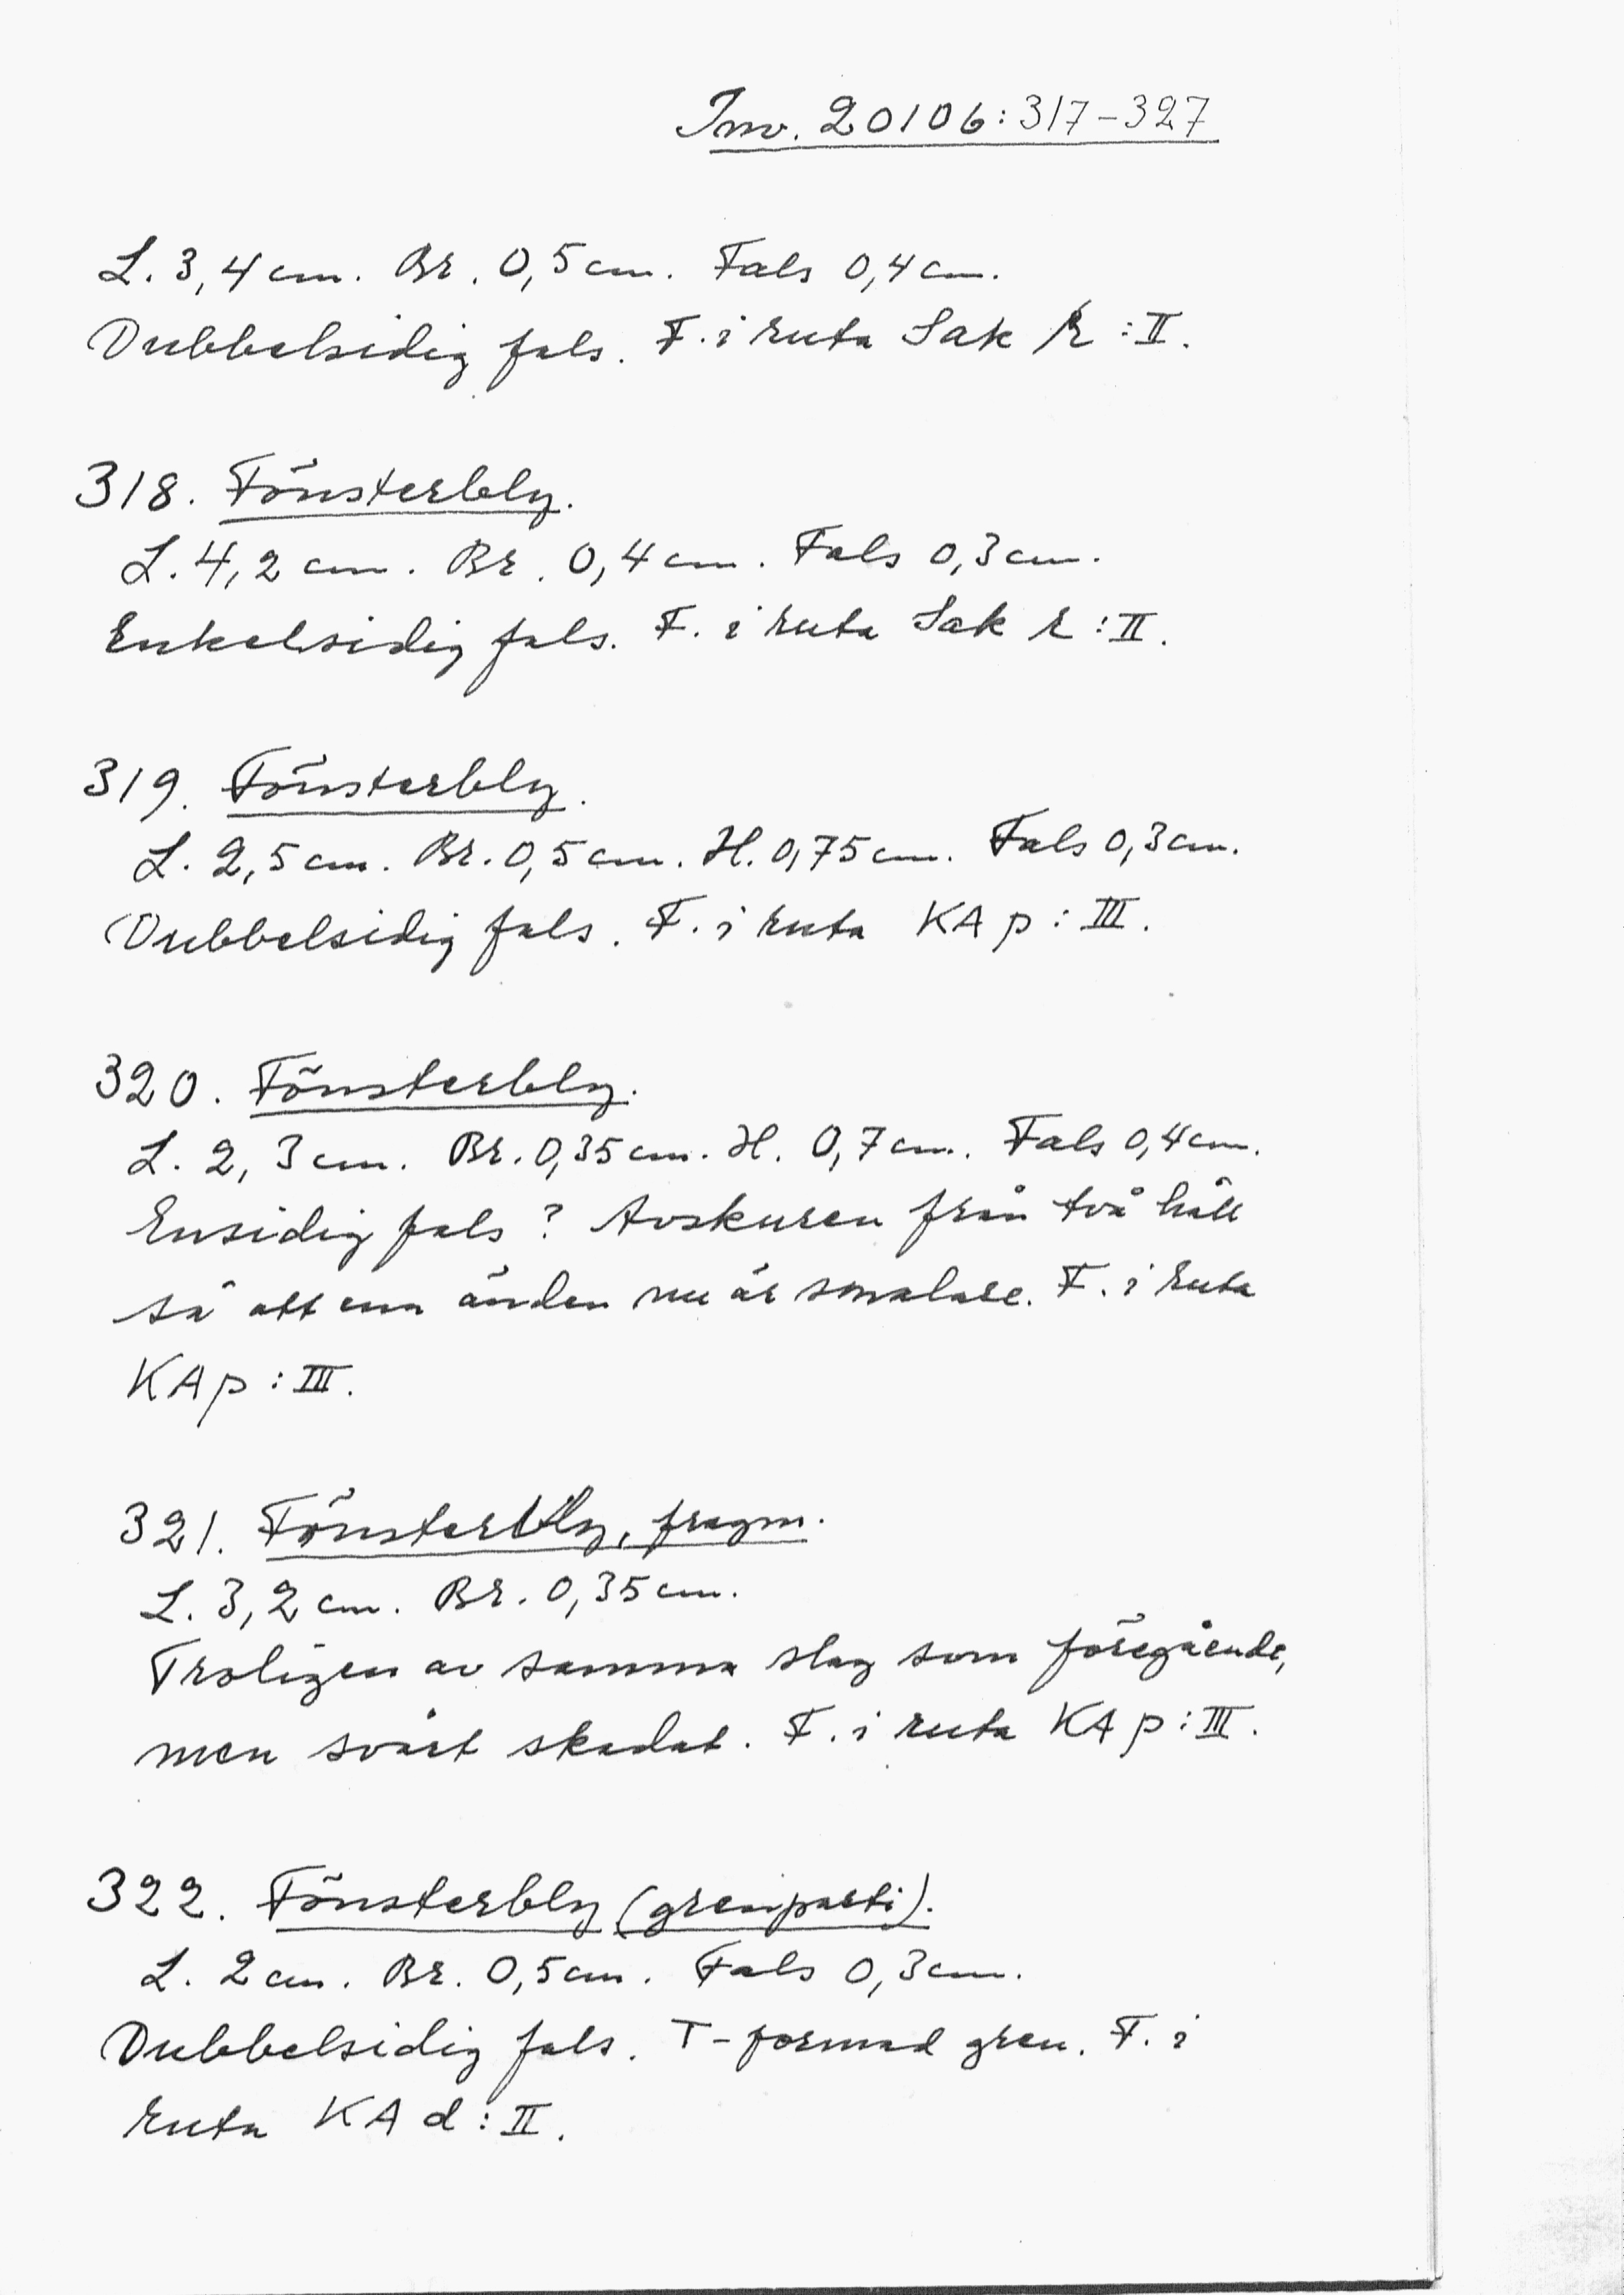 Inv. 20106:317-327
L. 3,4 cm. Br. 0,5 cm. Fals 0,4 cm.
Dubbelsidig fals. F. i ruta Sak r:II.
318. Fönsterbly.
L. 4,2 cm. Br. 0,4 cm. Fals 0,3 cm.
Enkelsidig fals. F. i ruta Sak r:II.
319. Fönsterbly.
L. 2,5 cm. Br. 0,5 cm. H. 0,75 cm. Fals 0,3 cm.
Dubbelsidig fals. F. i ruta KA p:III.
320. Fönsterbly.
L. 2,3 cm. Br. 0,35 cm. H. 0,7 cm. Fals 0,4 cm.
Ensidig fals? Avskuren från två håll
så att ena änden nu är smalare. F. i ruta
KA p:III.
321. Fönsterbly, fragm.
L. 3,2 cm. Br. 0,35 cm.
Troligen av samma slag som föregående,
men svårt skadat. F. i ruta KA p:III.
322. Fönsterbly (grenparti).
L. 2 cm. Br. 0,5 cm. Fals 0,3 cm.
Dubbelsidig fals. T-formad gren. F. i
ruta KA d:II.